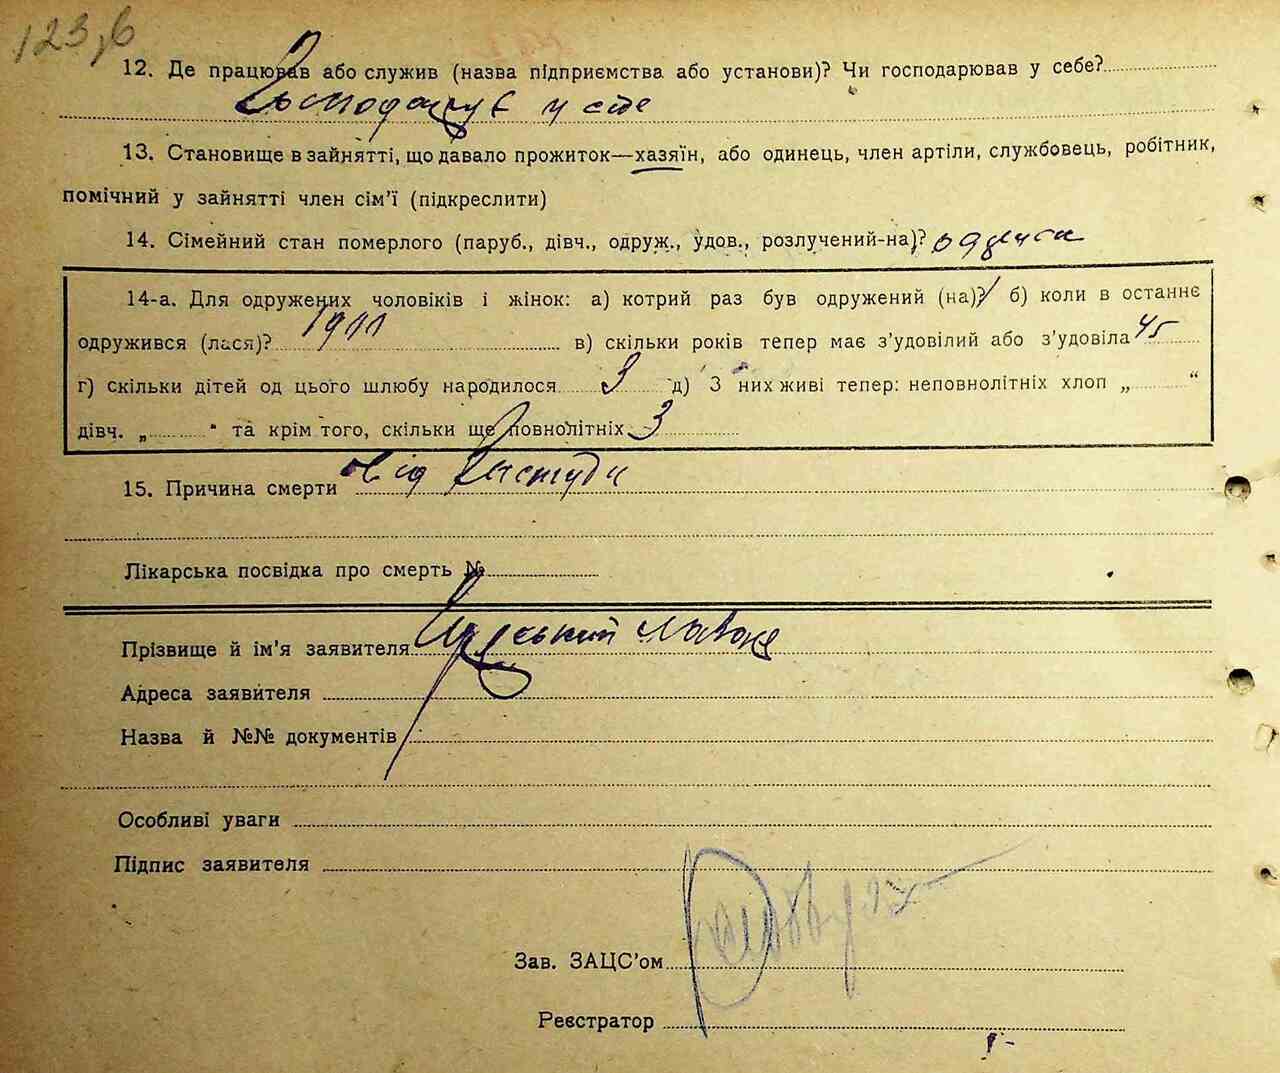 123,6
12. Де працював або служив (назва підприємства або установи)? Чи господарював у себе?
Господарює у себе
13. Становище в зайнятті, що давало прожиток—хазяїн, або одинець, член артіли, службовець, робітник,
помічний у зайнятті член сім'ї (підкреслити)
14. Сімейний стан померлого (паруб., дівч., одруж., удов., розлучений-на)?
14-а. Для одружених чоловіків і жінок: а) котрий раз був одружений (на)? б) коли в останнє
одружився (лася)? 1911 в) скільки років тепер має з'удовілий або з'удовіла 45
г) скільки дітей од цього шлюбу народилося 3 д) З них живі тепер: неповнолітніх хлоп „ “
дівч. „ “ та крім того, скільки ще повнолітніх 3
15. Причина смерти від простуди
Лікарська посвідка про смерть №
Прізвище й ім'я заявителя
Адреса заявителя
Назва й №№ документів
Особливі уваги
Підпис заявителя
Зав. ЗАЦС'ом
Реєстратор